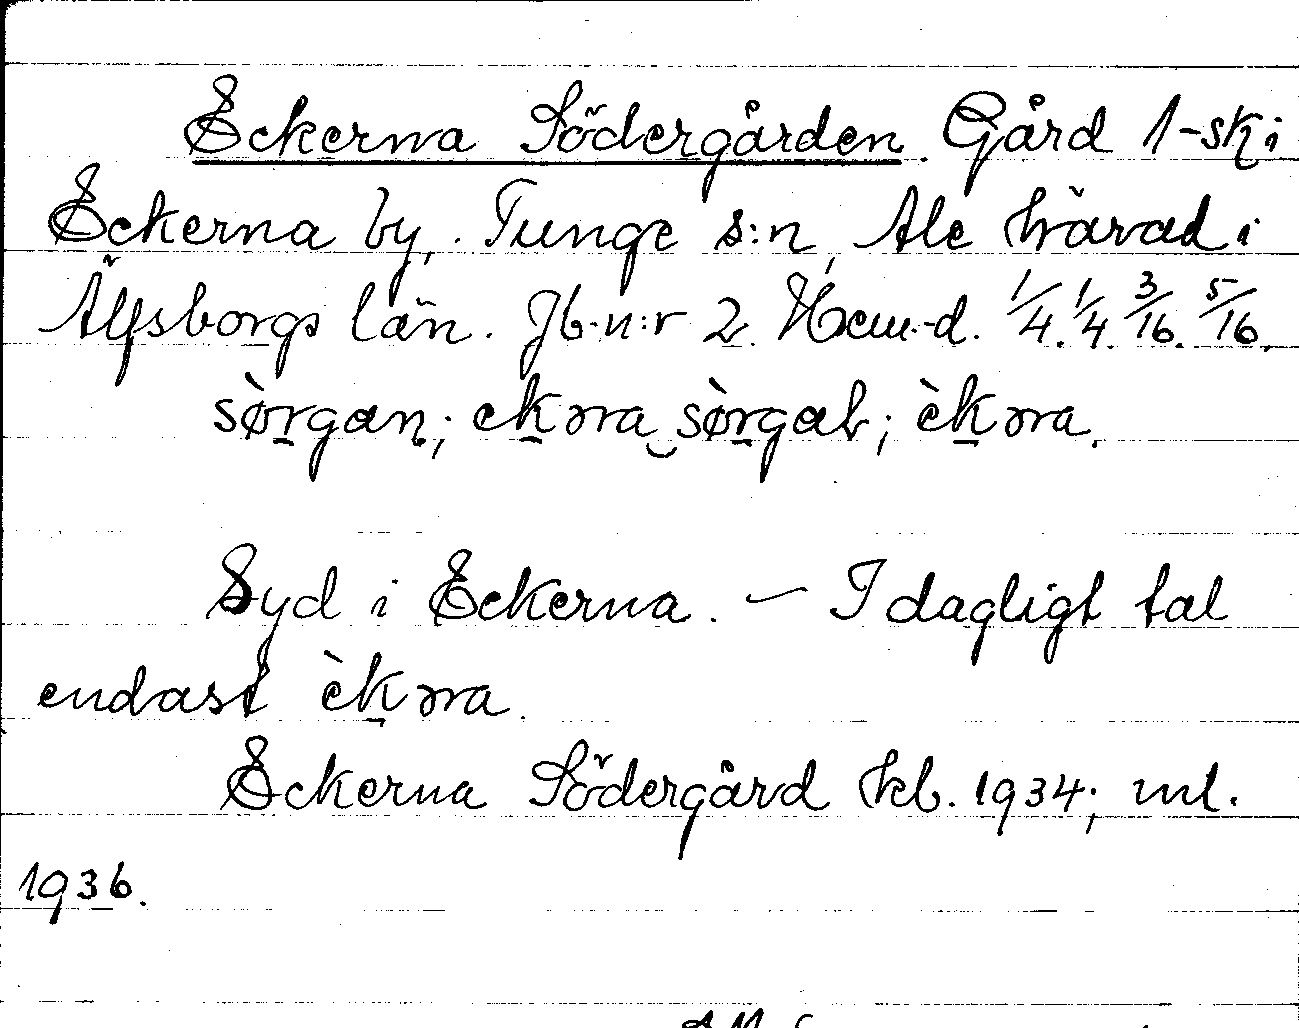 Eckerna Södergården. Gård 1-sk i
Eckerna by, Tunge s:n, Ale härad i
Älfsborgs län. Jb.n:r 2. Hem.-d. 1/4. 1/4. 3/16. 5/16.
sø̀rgan; ekəra‿sø̀rgaḷ; èkəra.
Syd i Eckerna. – I dagligt tal
endast èkəra.
Eckerna Södergård kb. 1934; ml.
1936.